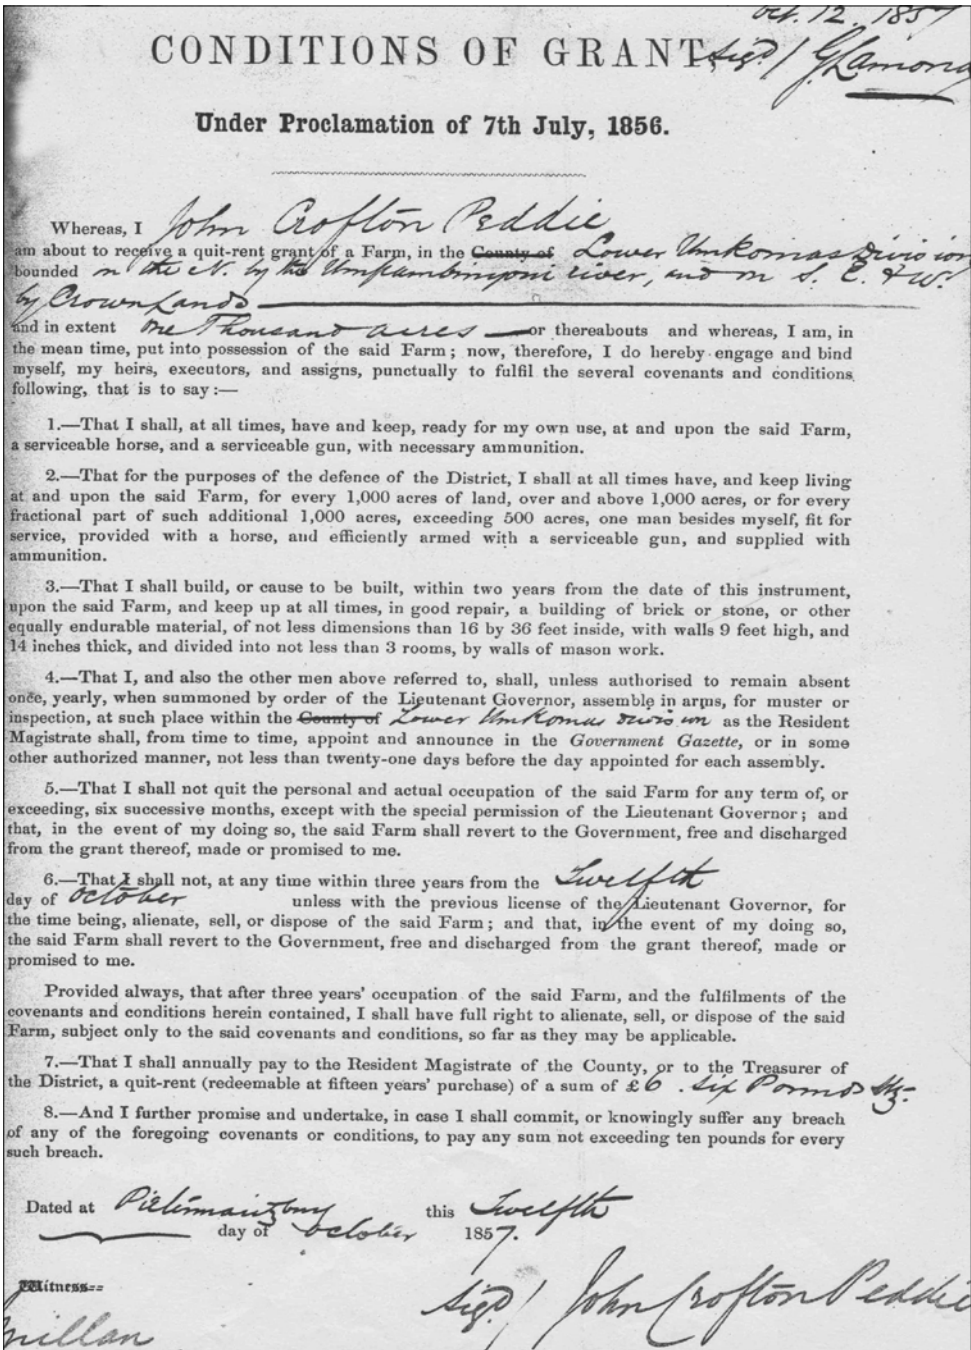 Oct. 12. 1857
CONDITIONS OF GRANT,
Sigd/
Under Proclamation of 7th July, 1856.
Whereas, I John Crofton Peddie
am about to receive a quit-rent grant of a Farm, in the County of Lower Umkomas Division
bounded on the N. by the river, and on S. E. & W.
by Crown Lands
and in extent One Thousand acres or thereabouts and whereas, I am, in
the mean time, put into possession of the said Farm; now, therefore, I do hereby engage and bind
myself, my heirs, executors, and assigns, punctually to fulfil the several covenants and conditions
following, that is to say:—
1.—That I shall, at all times, have and keep, ready for my own use, at and upon the said Farm,
a serviceable horse, and a serviceable gun, with necessary ammunition.
2.—That for the purposes of the defence of the District, I shall at all times have, and keep living
at and upon the said Farm, for every 1,000 acres of land, over and above 1,000 acres, or for every
fractional part of such additional 1,000 acres, exceeding 500 acres, one man besides myself, fit for
service, provided with a horse, and efficiently armed with a serviceable gun, and supplied with
ammunition.
3.—That I shall build, or cause to be built, within two years from the date of this instrument,
upon the said Farm, and keep up at all times, in good repair, a building of brick or stone, or other
equally endurable material, of not less dimensions than 16 by 36 feet inside, with walls 9 feet high, and
14 inches thick, and divided into not less than 3 rooms, by walls of mason work.
4.—That I, and also the other men above referred to, shall, unless authorised to remain absent
once, yearly, when summoned by order of the Lieutenant Governor, assemble in arms, for muster or
inspection, at such place within the County of Lower Umkomas Division as the Resident
Magistrate shall, from time to time, appoint and announce in the Government Gazette, or in some
other authorized manner, not less than twenty-one days before the day appointed for each assembly.
5.—That I shall not quit the personal and actual occupation of the said Farm for any term of, or
exceeding, six successive months, except with the special permission of the Lieutenant Governor; and
that, in the event of my doing so, the said Farm shall revert to the Government, free and discharged
from the grant thereof, made or promised to me.
6.—That I shall not, at any time within three years from the Twelfth
day of October unless with the previous license of the Lieutenant Governor, for
the time being, alienate, sell, or dispose of the said Farm; and that, in the event of my doing so,
the said Farm shall revert to the Government, free and discharged from the grant thereof, made or
promised to me.
Provided always, that after three years' occupation of the said Farm, and the fulfilments of the
covenants and conditions herein contained, I shall have full right to alienate, sell, or dispose of the said
Farm, subject only to the said covenants and conditions, so far as they may be applicable.
7.—That I shall annually pay to the Resident Magistrate of the County, or to the Treasurer of
the District, a quit-rent (redeemable at fifteen years' purchase) of a sum of £6. Six Pounds Stg.
8.—And I further promise and undertake, in case I shall commit, or knowingly suffer any breach
of any of the foregoing covenants or conditions, to pay any sum not exceeding ten pounds for every
such breach.
Dated at Pietermaritzburg this Twelfth
day of October 1857.
Witness
Sigd/ John Crofton Peddie
millan